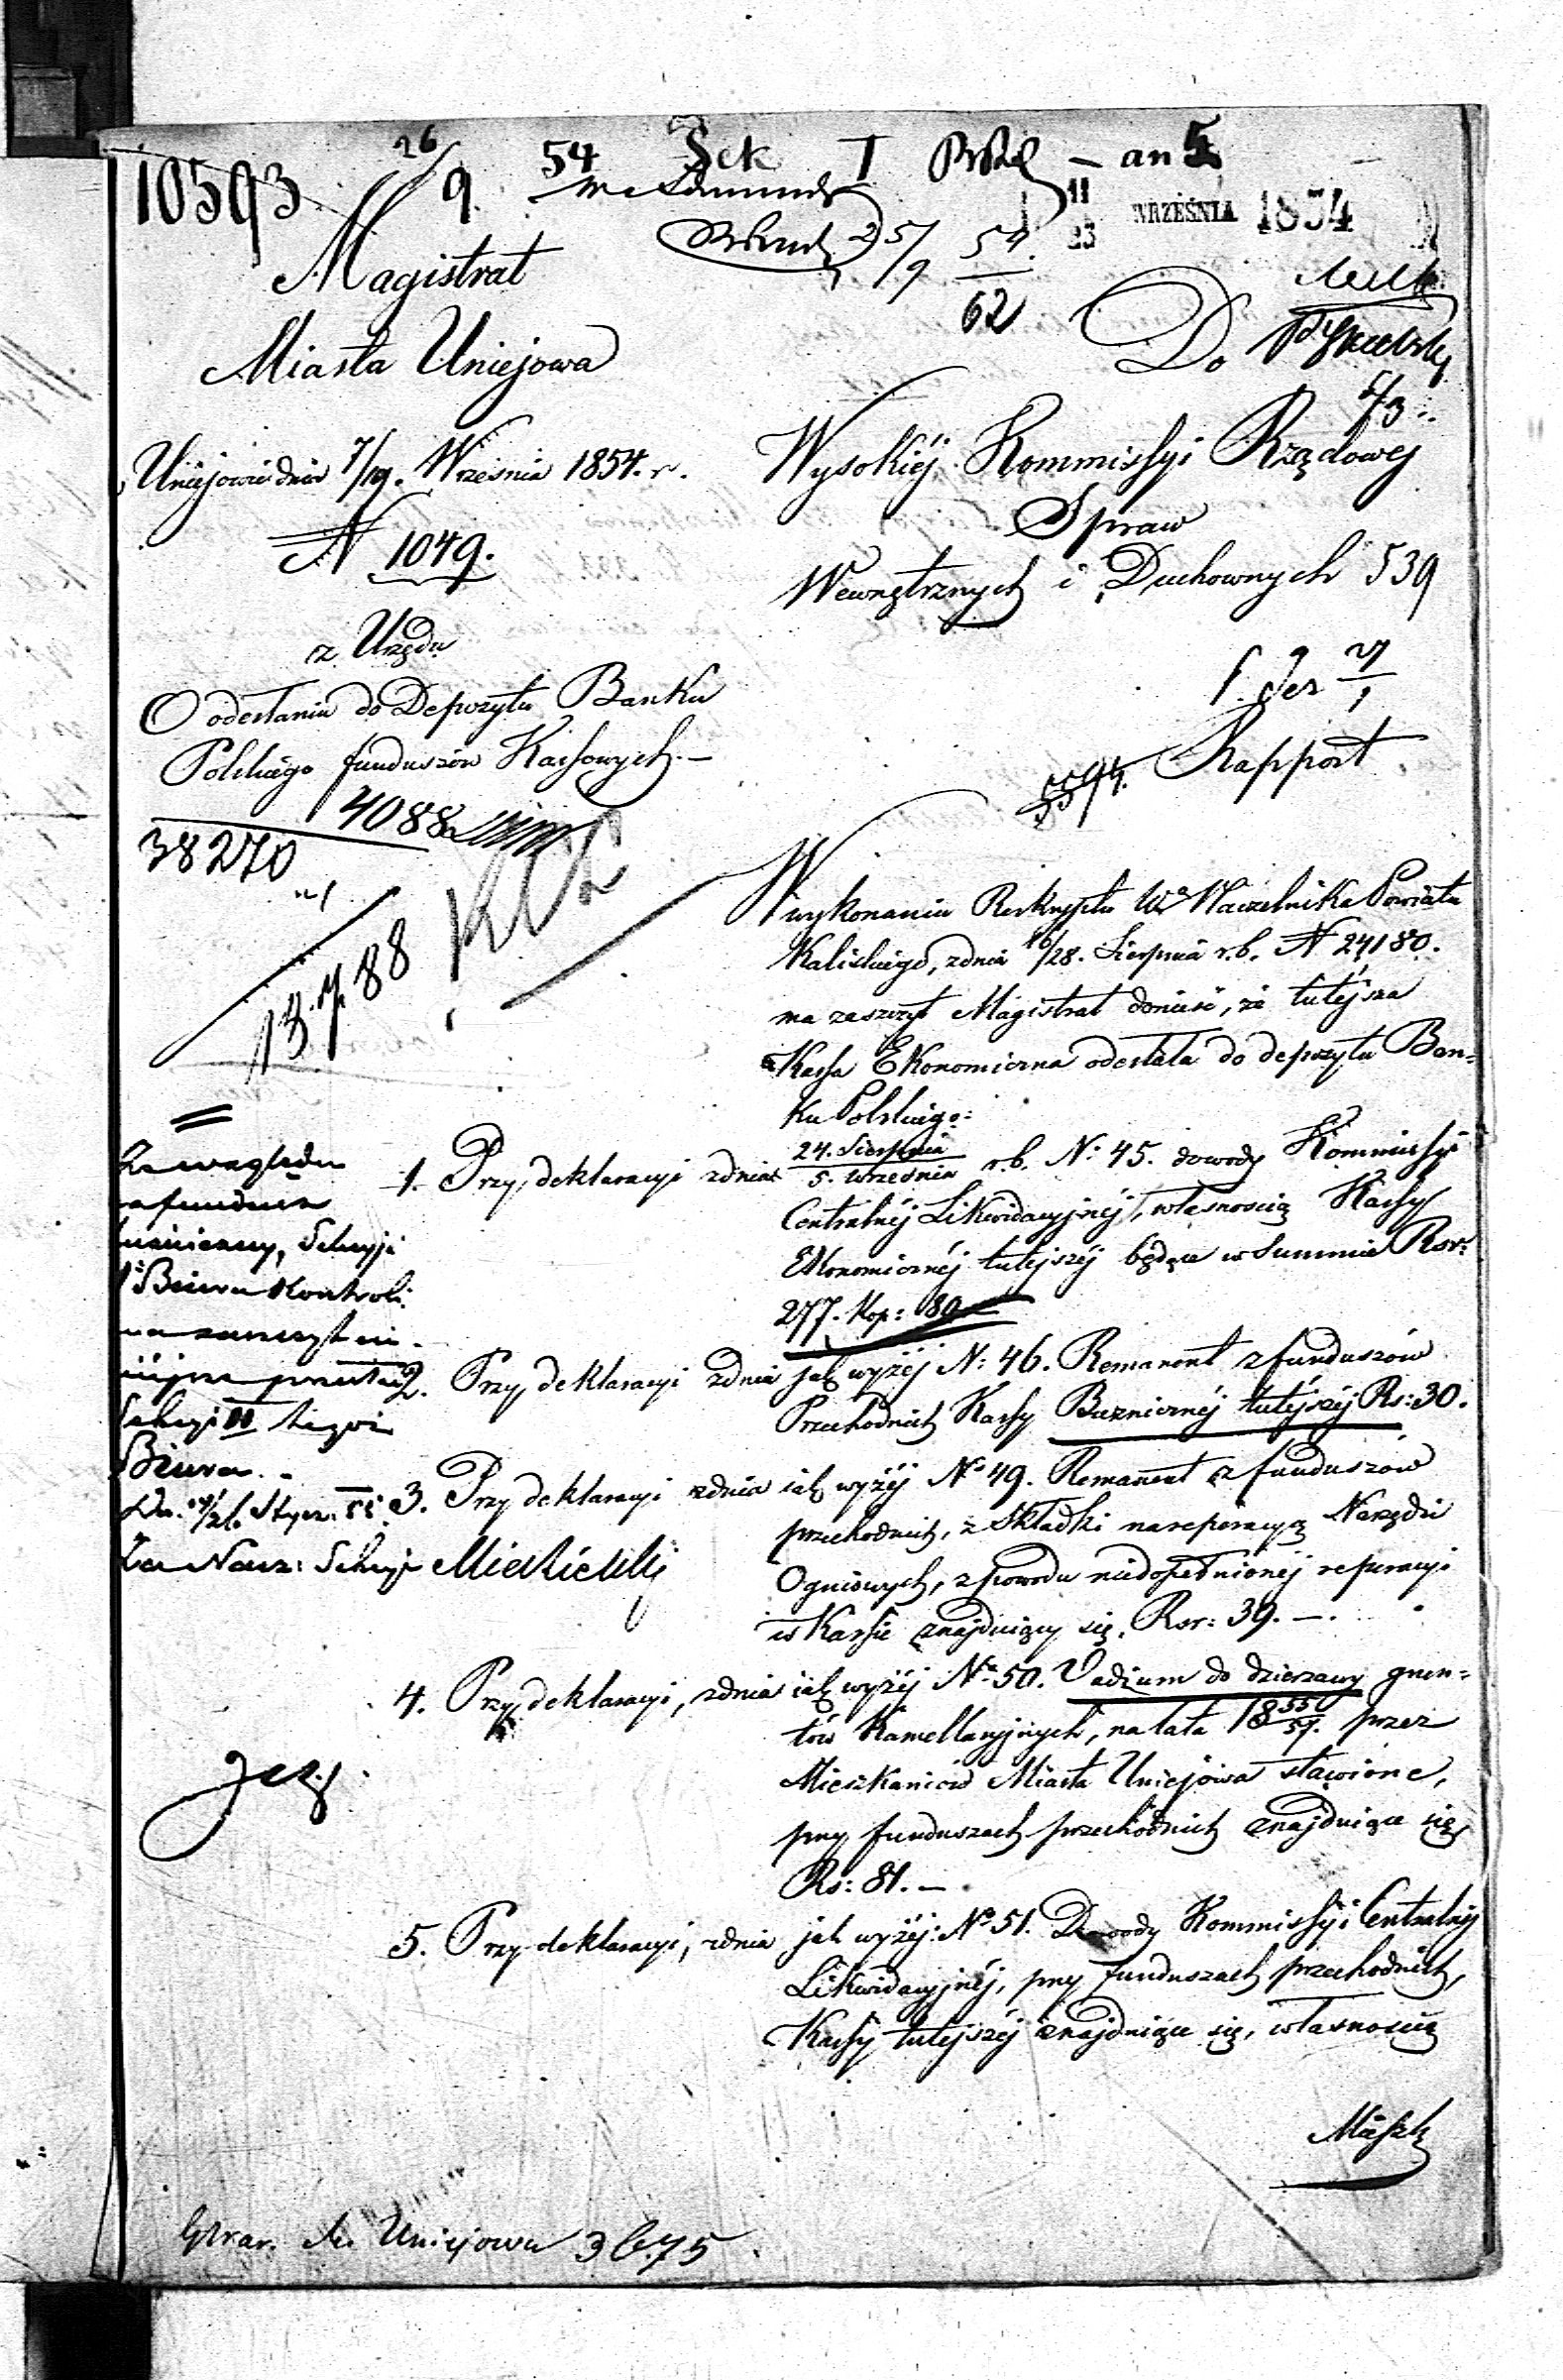 10593 26/9 54 Sek I — an 5
25/9 54 11/23 WRZEŚNIA 1854
62
Magistrat
Miasta Uniejowa
Uniejowie dnia 7/19. Września 1854. r.
N 1049.
z Urzędu
O odesłaniu do Depozytu Banku
Polskiego funduszów Kassowych.—
4088
38270
13.7.88
Do
Wysokiéj Kommissyi Rządowej
Spraw
Wewnętrznych i Duchownych 539
5594. Rapport
W wykonaniu Reskryptu Wo Naczelnika Powiatu
Kaliskiego, z dnia 16/28. Sierpnia r.b. N 24180.
ma zaszczyt Magistrat donieść, że tutéjsza
Kassa Ekonomiczna odesłała do depozytu Ban=
ku Polskiego:
1. Przy deklaracyi z dnia 24. Sierpnia / 5. Września r.b. No 45. dowody Kommissyi
Centralnéj Likwidacyjnéj, własnością Kassy
Ekonomicznéj tutejszéj będące w Summie Rsr:
277. Kop: 80
2. Przy deklaracyi z dnia jak wyżéj N: 46. Remanent z funduszów
Przechodnich Kassy Buźnicznéj tutéjszéj Rs: 30.
3. Przy deklaracyi z dnia jak wyżéj No 49. Remanent z funduszów
przechodnich, z Składki na reperacyą Narzędzi
Ogniowych, z powodu niedopełnionéj reperacyi
w Kassie znajdujący się, Rsr: 39.—.
4. Przy deklaracyi, z dnia jak wyżéj No 50. Vadium do dzierzawy grun=
tów Kamellaryjnych, na lata 1855/57. przez
Mieszkańców Miasta Uniejowa stawione,
przy funduszach przechodnich znajdujące się
Rs: 81.—
5. Przy deklaracyi, z dnia jak wyżéj: No 51. Dowody Kommissyi Centralnéj
Likwidacyjnéj, przy funduszach przechodnich,
Kassy tutejszéj znajdujące się, własnością
Mieszk
Ze względu
funduszu
Sekcyja
Biura Kontroli
ma zaszczyt ni-
niejsze
Sekcyi II tegoż
Biura.
Stycz. 55.
Za Nacz: Sekcyi
M. Uniejowa 3675